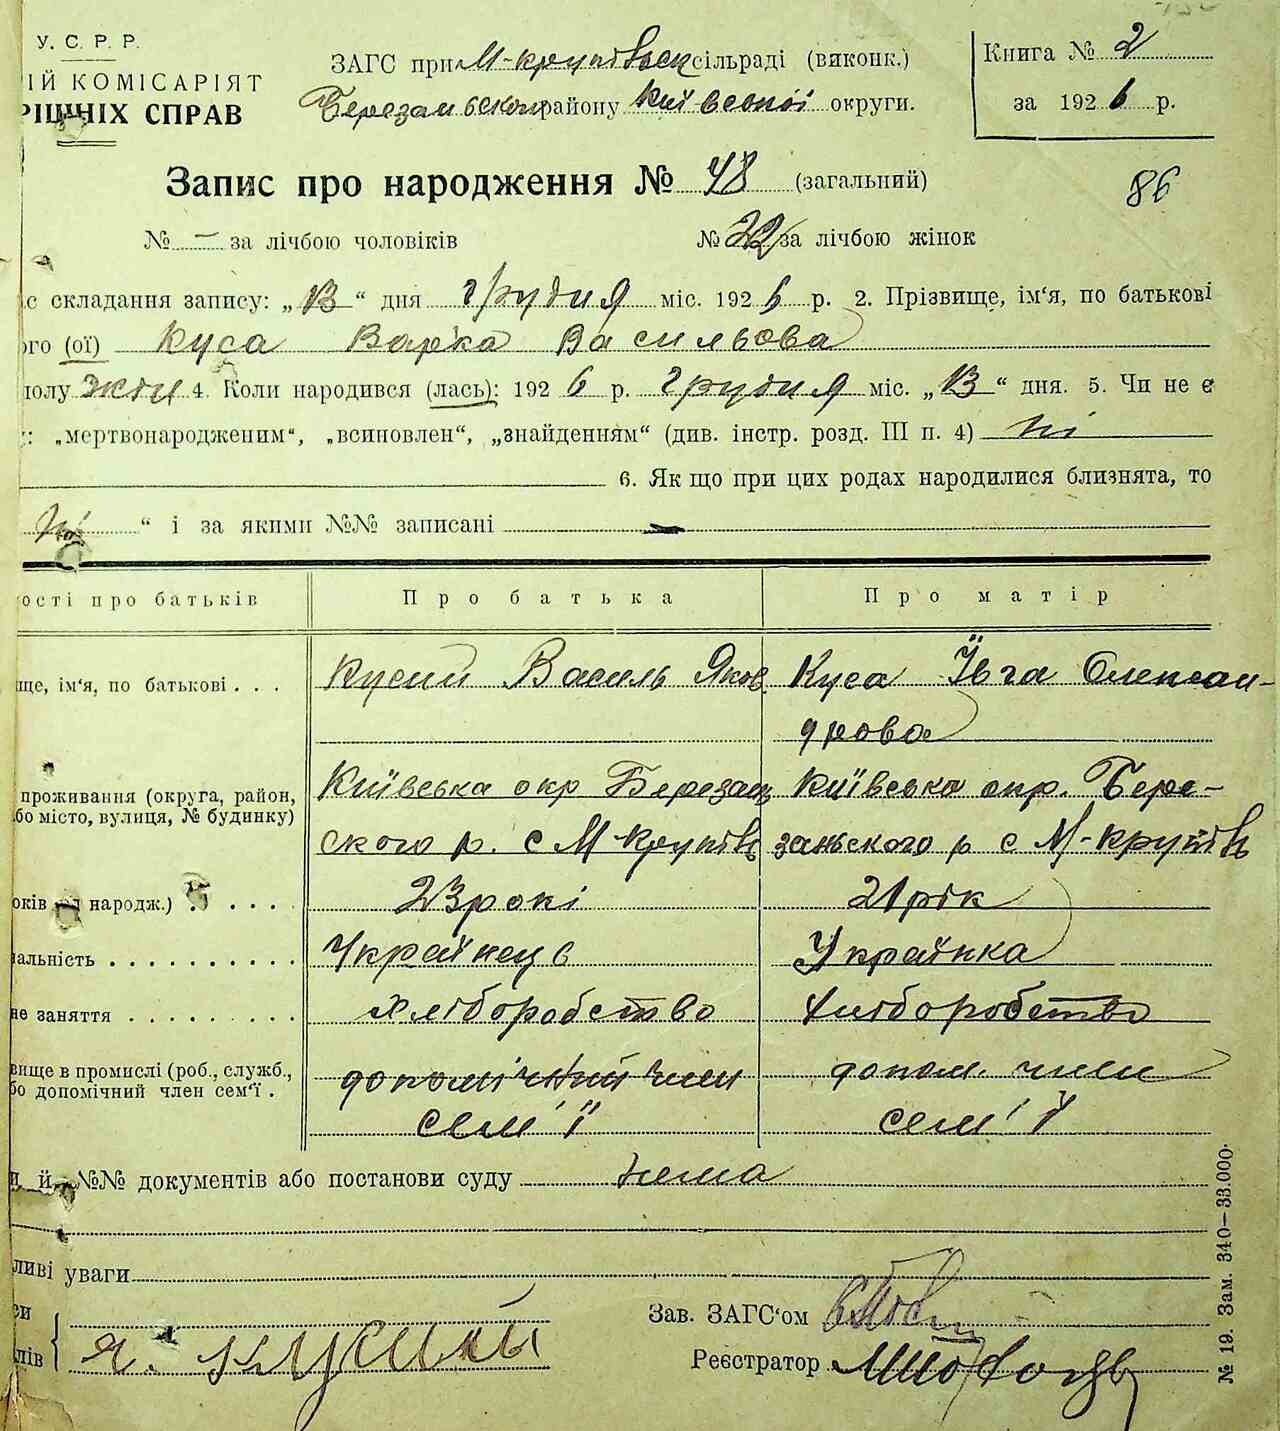 У. С. Р. Р.
ІЙ КОМІСАРІЯТ
РІШНІХ СПРАВ
ЗАГС при М-крупівськ сільраді (виконк.)
Березанському району Київської округи.
Книга № 2
за 1926 р.
Запис про народження № 48 (загальний)
86
№ — за лічбою чоловіків № 22 за лічбою жінок
с складання запису: „13“ дня грудня міс. 1926 р. 2. Прізвище, ім‘я, по батькові
ого (ої) Куса Варка Васильова
полу жін 4. Коли народився (лась): 1926 р. грудня міс. „13“ дня. 5. Чи не є
: „мертвонародженим“, „всиновлен“, „знайденням“ (див. інстр. розд. III п. 4) ні
6. Як що при цих родах народилися близнята, то
ні “ і за якими №№ записані —
ості про батьків Про батька Про матір
ще, ім‘я, по батькові . . . Кусий Василь Яков Куса Ївга Олексан-
дрова
проживання (округа, район,
бо місто, вулиця, № будинку)
Київська окр Березан Київська окр. Бере-
ского р. с М-крупів заньского р с М-крупів
оків від народж.) . . . . 23 рокі 21 рік
альність . . . . . . . . . . Українець Українка
не заняття . . . . . . . . . хліборобство хліборобство
вище в промислі (роб., служб.,
бо допомічний член сем‘ї .
допомічний член допом. член
сем'ї сем'ї
и й №№ документів або постанови суду нема
ливі уваги
си
лів { Я. Кусий
Зав. ЗАГС‘ом
Реєстратор
№ 19. Зам. 340—33.000.